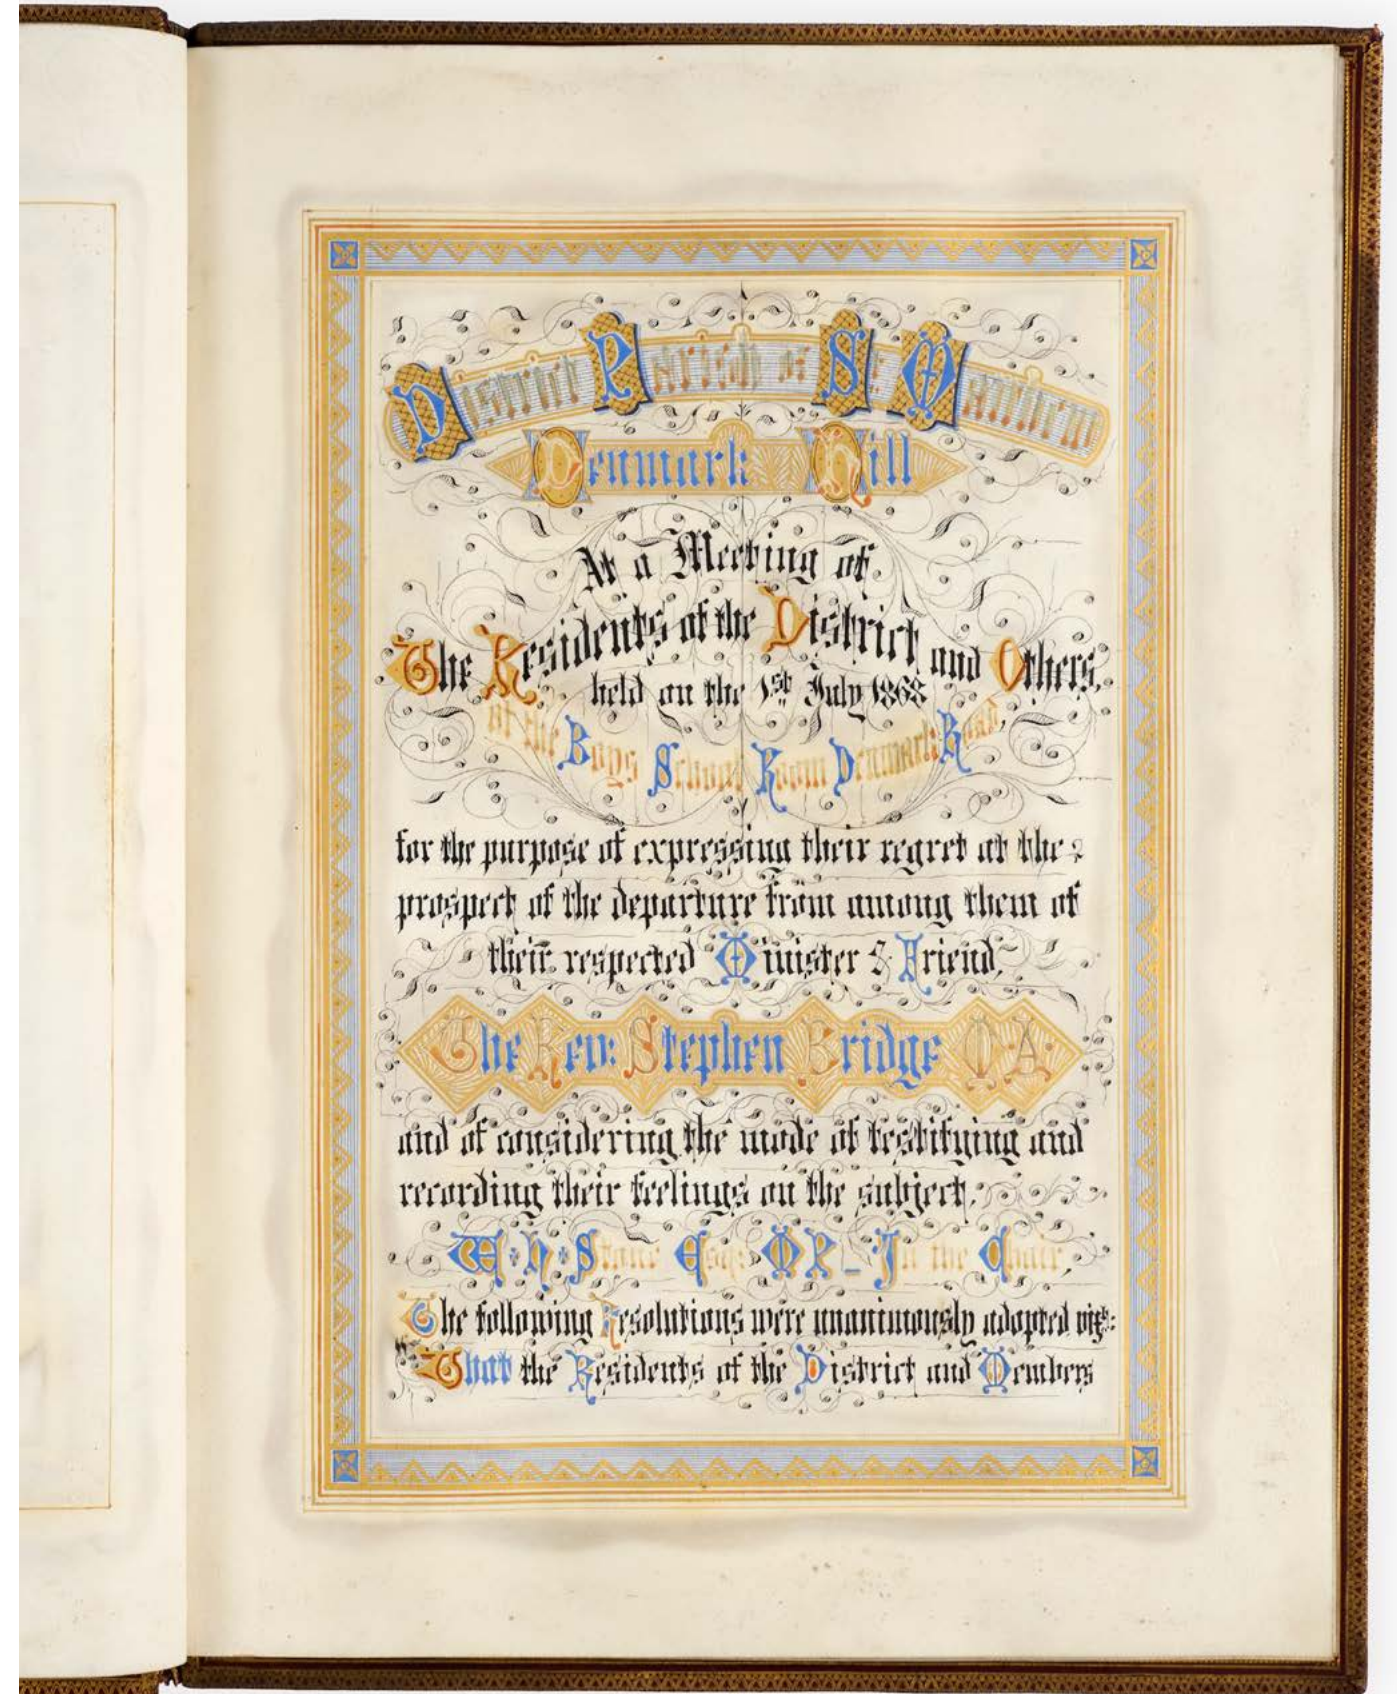 District Parish of St. Matthew
Denmark Hill
At a Meeting of
The Residents of the District and Others,
held on the 1st July 1868
at the Boys School Room Denmark Road,
for the purpose of expressing their regret at the
prospect of the departure from among them of
their respected Minister & Friend,
The Rev: Stephen Bridge M.A.
and of considering the mode of testifying and
recording their feelings on the subject,
W. H. Stone Esq: MP_ In the Chair,
The following Resolutions were unanimously adopted viz:
That the Residents of the District and Members